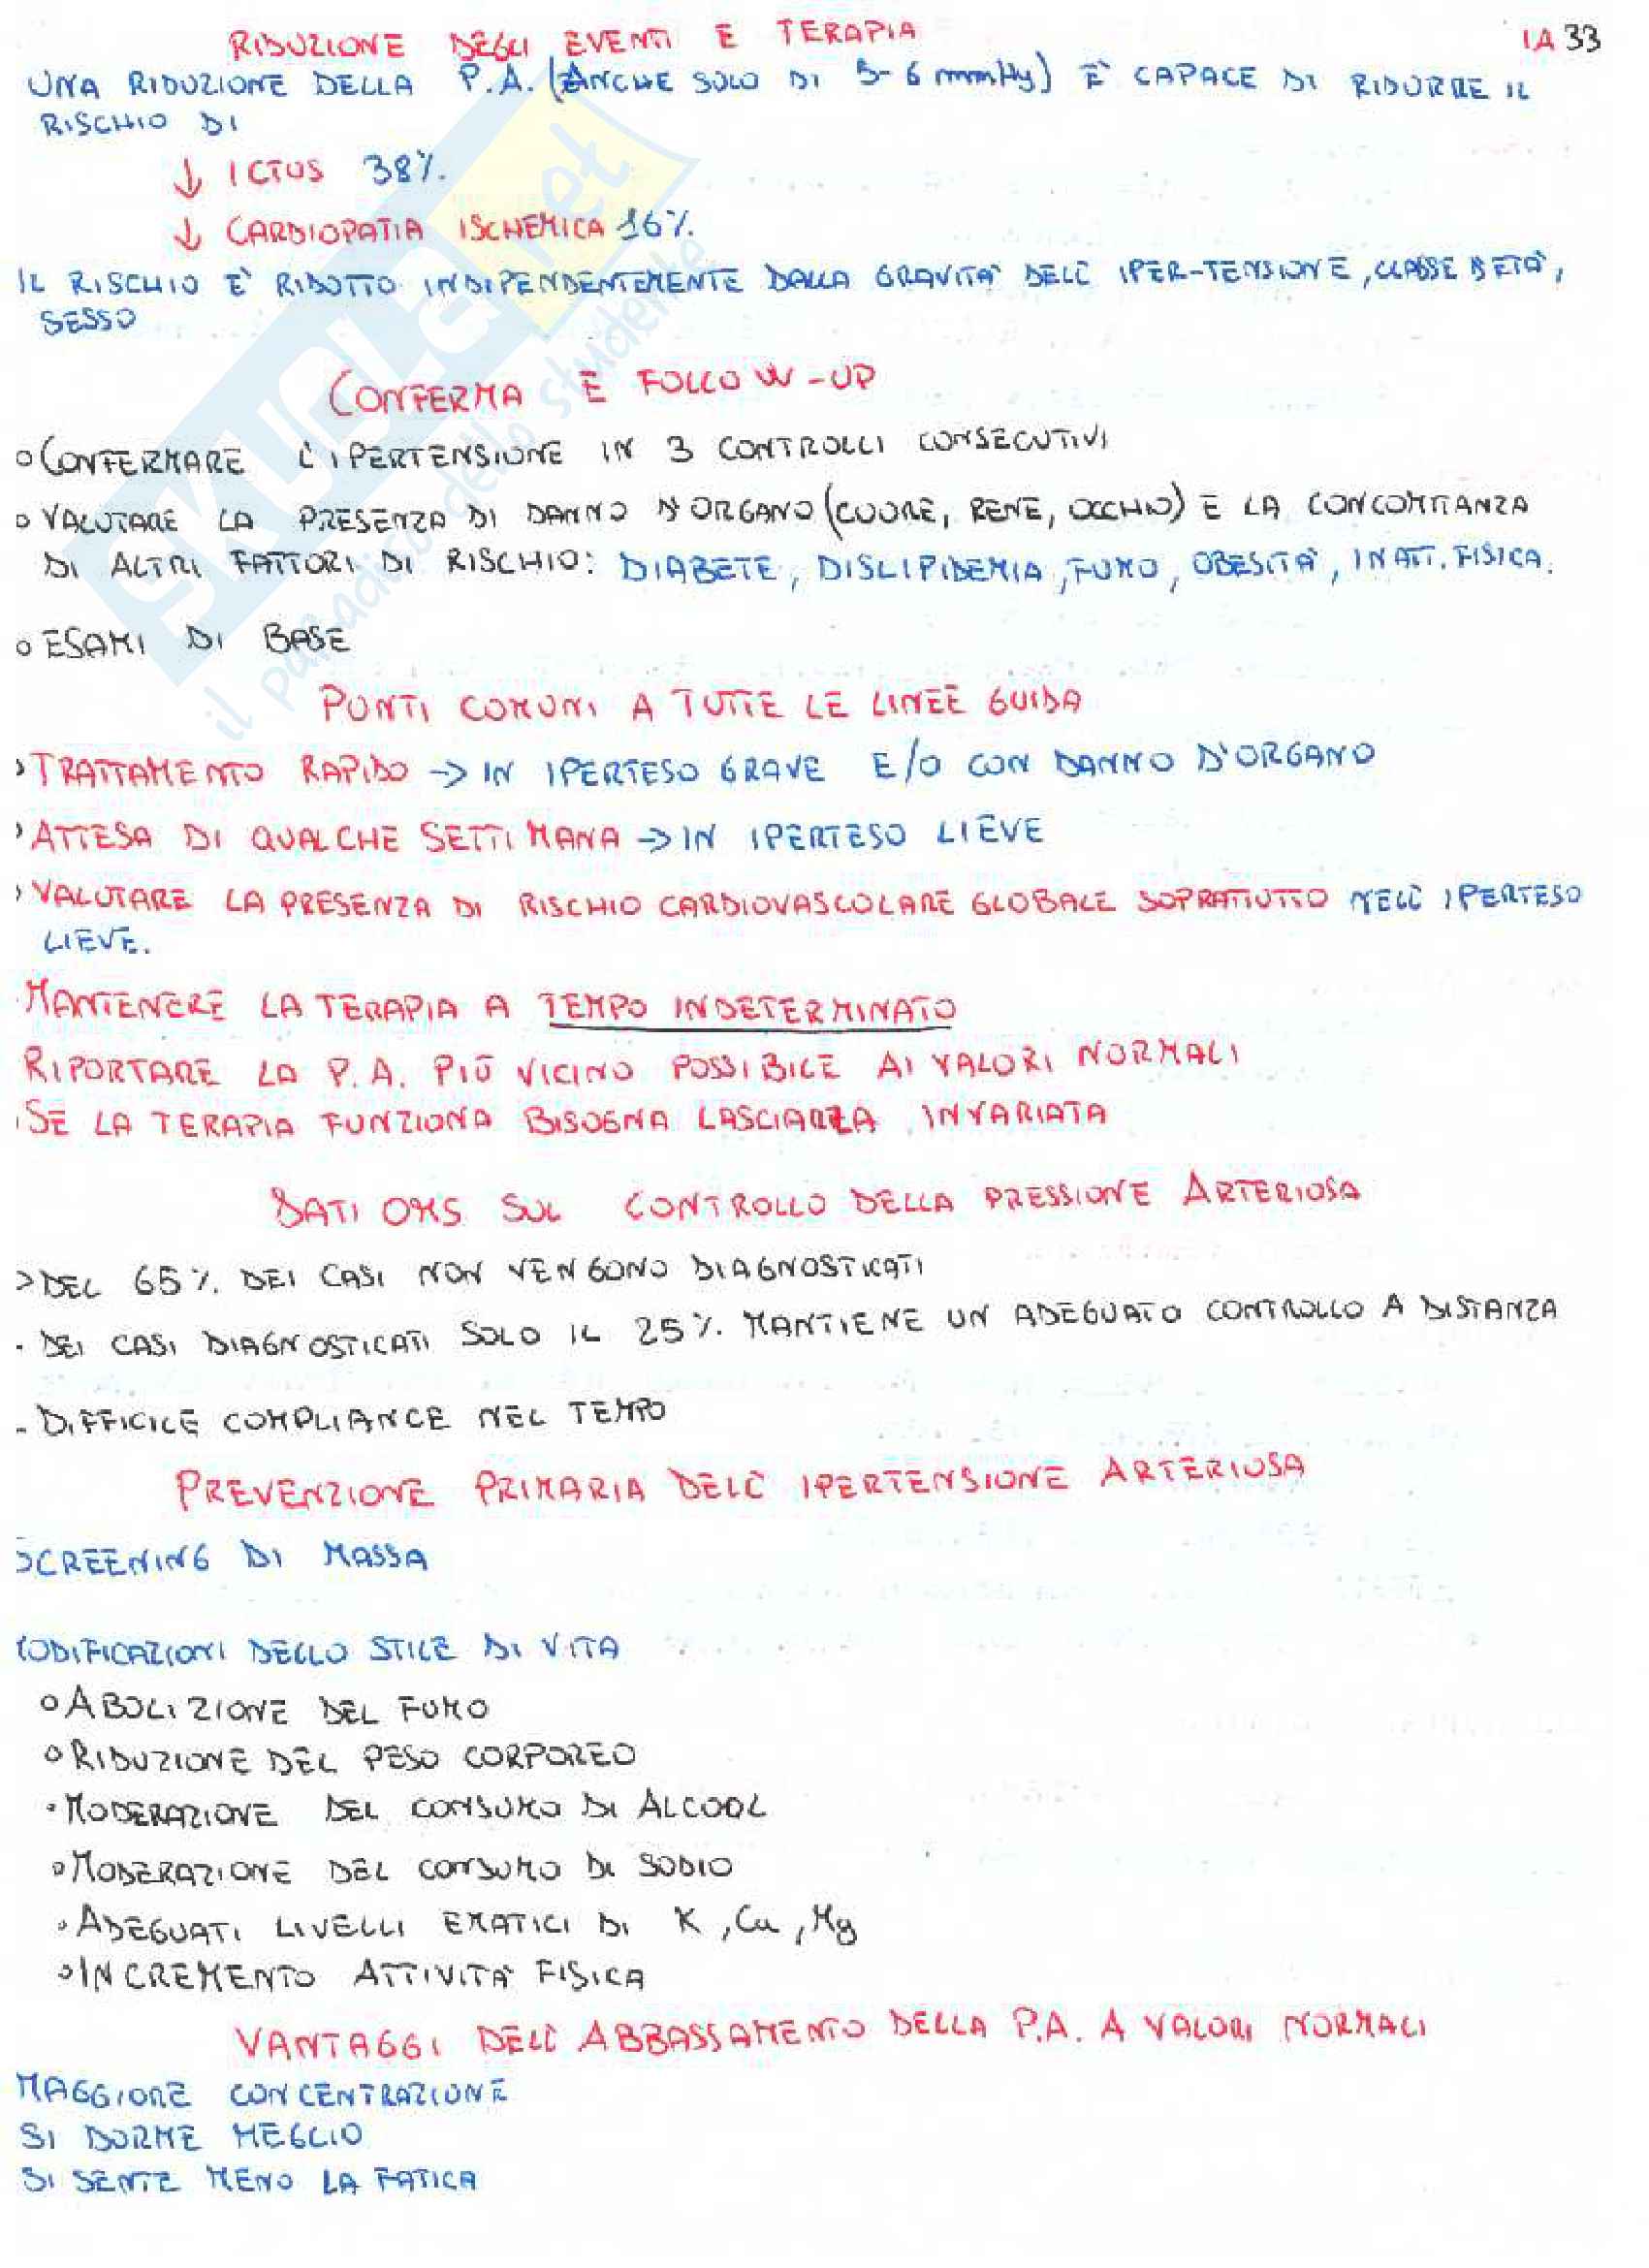 RIDUZIONE DEGLI EVENTI E TERAPIA
IA 33
UNA RIDUZIONE DELLA P.A. (ANCHE SOLO DI 5-6 mmHg) È CAPACE DI RIDURRE IL
RISCHIO DI
↓ ICTUS 38%.
↓ CARDIOPATIA ISCHEMICA 16%.
IL RISCHIO E' RIDOTTO INDIPENDENTEMENTE DALLA GRAVITA' DELL' IPER-TENSIONE, CLASSE D ETA',
SESSO
CONFERMA E FOLLOW-UP
o CONFERMARE L'IPERTENSIONE IN 3 CONTROLLI CONSECUTIVI
o VALUTARE LA PRESENZA DI DANNO D'ORGANO (CUORE, RENE, OCCHIO) E LA CONCOMITANZA
DI ALTRI FATTORI DI RISCHIO: DIABETE, DISLIPIDEMIA, FUMO, OBESITA', INATT. FISICA.
o ESAMI DI BASE
PUNTI COMUNI A TUTTE LE LINEE GUIDA
> TRATTAMENTO RAPIDO -> IN IPERTESO GRAVE E/O CON DANNO D'ORGANO
> ATTESA DI QUALCHE SETTIMANA -> IN IPERTESO LIEVE
> VALUTARE LA PRESENZA DI RISCHIO CARDIOVASCOLARE GLOBALE SOPRATTUTTO NELL' IPERTESO
LIEVE.
MANTENERE LA TERAPIA A TEMPO INDETERMINATO
RIPORTARE LA P.A. PIÙ VICINO POSSIBILE AI VALORI NORMALI
SE LA TERAPIA FUNZIONA BISOGNA LASCIARLA INVARIATA
DATI OMS SUL CONTROLLO DELLA PRESSIONE ARTERIOSA
> DEL 65%. DEI CASI NON VENGONO DIAGNOSTICATI
- DEI CASI DIAGNOSTICATI SOLO IL 25%. MANTIENE UN ADEGUATO CONTROLLO A DISTANZA
- DIFFICILE COMPLIANCE NEL TEMPO
PREVENZIONE PRIMARIA DELL' IPERTENSIONE ARTERIOSA
SCREENING DI MASSA
MODIFICAZIONI DELLO STILE DI VITA
o ABOLIZIONE DEL FUMO
o RIDUZIONE DEL PESO CORPOREO
• MODERAZIONE DEL CONSUMO DI ALCOOL
o MODERAZIONE DEL CONSUMO DI SODIO
• ADEGUATI LIVELLI EMATICI DI K, Ca, Mg
o INCREMENTO ATTIVITA' FISICA
VANTAGGI DELL' ABBASSAMENTO DELLA P.A. A VALORI NORMALI
MAGGIORE CONCENTRAZIONE
SI DORME MEGLIO
SI SENTE MENO LA FATICA
SKUOLA.net
il paradiso dello studente